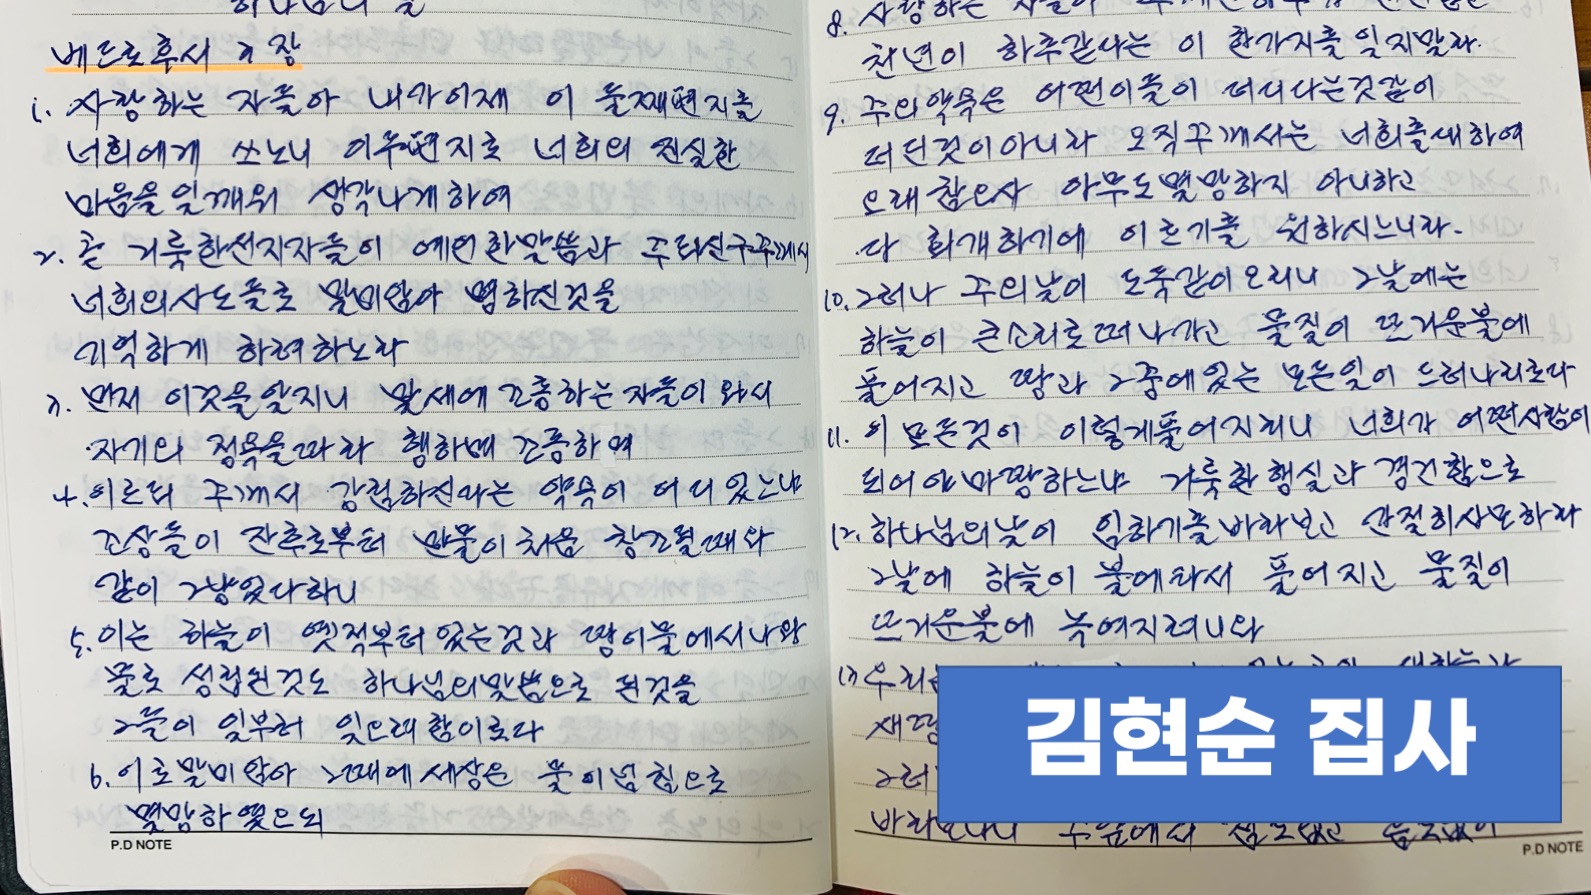 하나님의 돌
베드로후서 3장
1. 사랑하는 자들아 내가이제 이 둘째편지를
너희에게 쓰노니 이두편지로 너희의 진실한
마음을일깨워 생각나게하여
2. 곧 거룩한선지자들이 예언한말씀과 주되신구주께서
너희의사도들로 말미암아 명하신것을
기억하게 하려하노라
3. 먼저 이것을알지니 말세에 조롱하는자들이 와서
자기의 정욕을따라 행하며 조롱하여
4. 이르되 주께서 강림하신다는 약속이 어디있느냐
조상들이 잔후로부터 만물이처음 창조될때와
같이 그냥있다하니
5. 이는 하늘이 옛적부터있는것과 땅이물에서나와
물로 성립된것도 하나님의말씀으로 된것을
그들이 일부러 잊으려함이로다
6. 이로말미암아 그때에세상은 물이넘침으로
멸망하였으되
P.D NOTE
8. 사랑하는 자들아
천년이 하루같다는 이 한가지를잊지말라.
9. 주의약속은 어떤이들이 더디다는것같이
더딘것이아니라 오직주께서는 너희를대하여
오래참으사 아무도멸망하지 아니하고
다 회개하기에 이르기를 원하시느니라.
10. 그러나 주의날이 도둑같이오리니 그날에는
하늘이 큰소리로떠나가고 물질이 뜨거운불에
풀어지고 땅과 그중에있는 모든일이 드러나리로다
11. 이 모든것이 이렇게풀어지리니 너희가 어떤사람이
되어야마땅하느냐 거룩한행실과 경건함으로
12. 하나님의날이 임하기를바라보고 간절히사모하라
그날에 하늘이 불에타서 풀어지고 물질이
뜨거운불에 녹여지려니와
13 우리는
새땅
그러
바라보나니 주앞에서 점도없고 흠도없이
P.D NOTE
김현순 집사